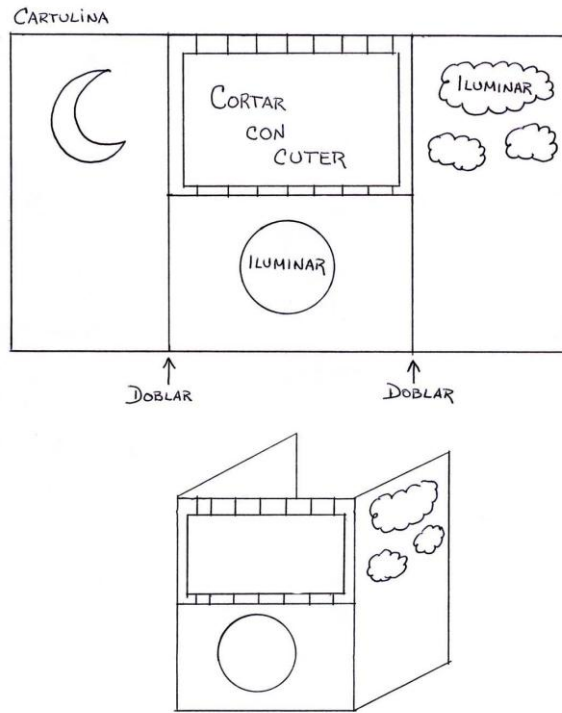 CARTULINA
CORTAR
CON
CUTER
ILUMINAR
ILUMINAR
DOBLAR
DOBLAR